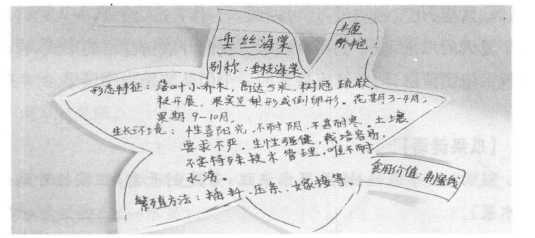 垂丝海棠
别称：垂枝海棠
形态特征：落叶小乔木，高达5米，树冠疏散，
枝开展，果实呈梨形或倒卵形。花期3-4月，
果期9-10月。
生长环境：性喜阳光，不耐阴，不甚耐寒。土壤
要求不严，生性强健，栽培容易，
不需特殊技术管理，唯不耐
水涝。
繁殖方法：插扦、压条、嫁接等。
食用价值：制蜜饯